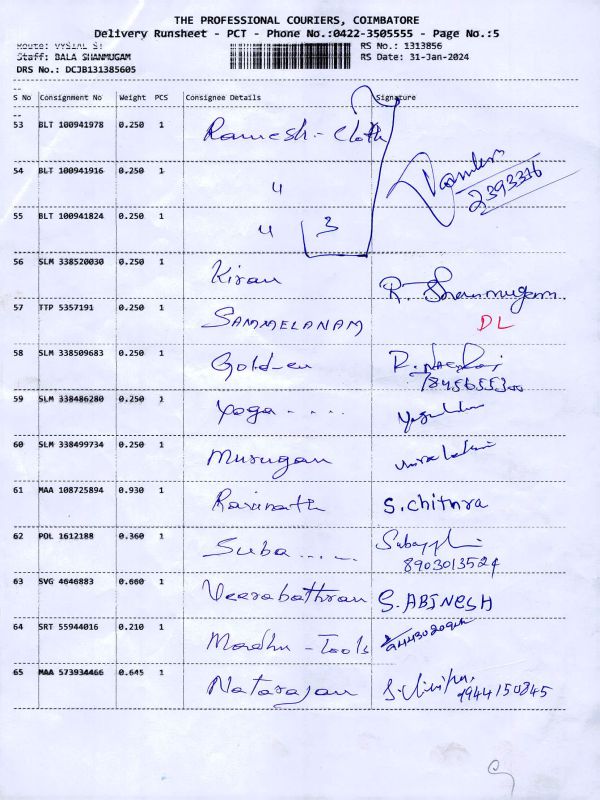 THE PROFESSIONAL COURIERS, COIMBATORE
Delivery Runsheet - PCT - Phone No.:0422-3505555 - Page No.:5
Route: VYSIAL ST
RS No.: 1313856
Staff: BALA SHANMUGAM
RS Date: 31-Jan-2024
DRS No.: DCJB131385605
S No Consignment No Weight PCS Consignee Details Signature
53 BLT 100941978 0.250 1 Ramesh - Cloth
54 BLT 100941916 0.250 1 "
2393316
55 BLT 100941824 0.250 1 " 3
56 SLM 338520030 0.250 1 Kiran R. Shanmugam
57 TTP 5357191 0.250 1 SAMMELANAM DL
58 SLM 338509683 0.250 1 Golden
59 SLM 338486280 0.250 1 Yoga - - - -
60 SLM 338499734 0.250 1 Murugan
61 MAA 108725894 0.930 1 S. Chithra
62 POL 1612188 0.360 1 Suba - - - -
8903013524
63 SVG 4646883 0.660 1 Veerabathran S. ABINESH
64 SRT 55944016 0.210 1 Madhu - Tools
65 MAA 573934466 0.645 1 Natarajan 9944150845